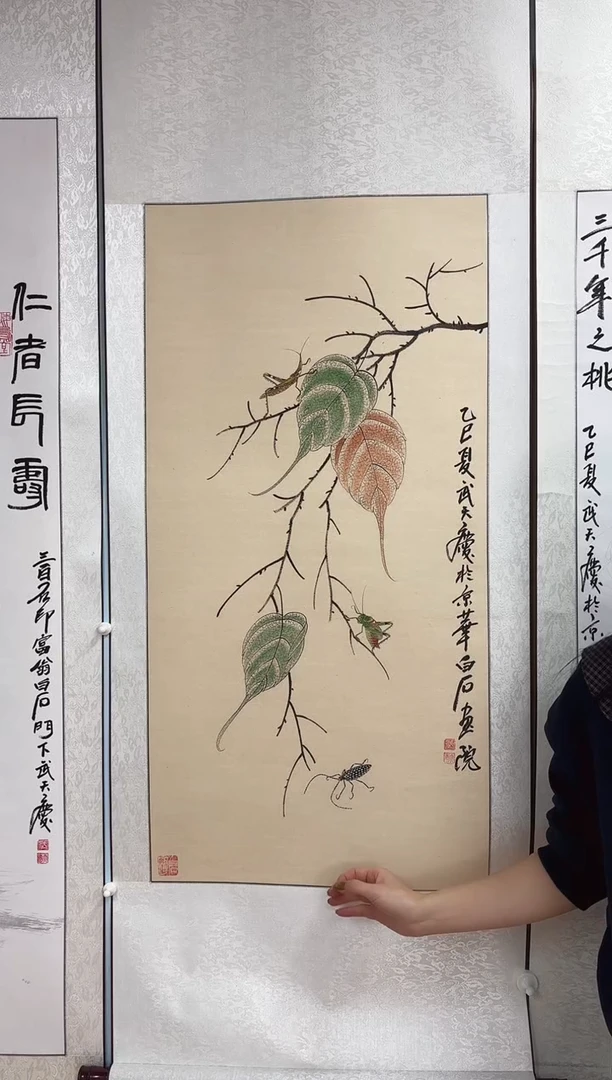 仁者長壽
三百石印富翁白石門下武天慶
乙巳夏武天慶於京華白石画院
三千年之桃
乙巳夏武天慶於京